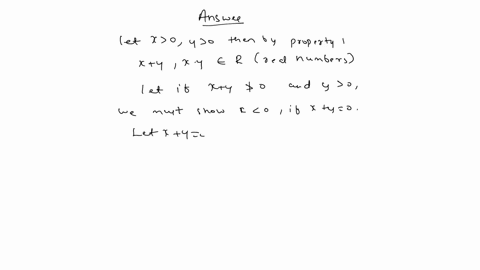 Answer
Let x>0, y>0 then by property 1
x+y, x·y ∈ R (real numbers)
Let if x+y ≯ 0 and y>0,
we must show x<0, if x+y=0.
Let x+y=